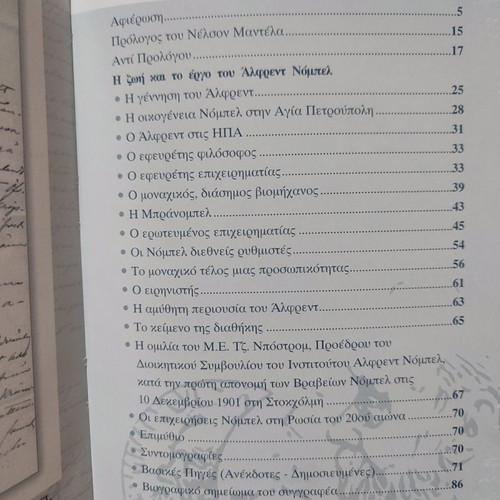 Αφιέρωση 5
Πρόλογος του Νέλσον Μαντέλα 15
Αντί Προλόγου 17
Η ζωή και το έργο του Άλφρεντ Νόμπελ
• Η γέννηση του Άλφρεντ 25
• Η οικογένεια Νόμπελ στην Αγία Πετρούπολη 28
• Ο Άλφρεντ στις ΗΠΑ 31
• Ο εφευρέτης φιλόσοφος 33
• Ο εφευρέτης επιχειρηματίας 33
• Ο μοναχικός, διάσημος βιομήχανος 39
• Η Μπράνομπελ 43
• Ο ερωτευμένος επιχειρηματίας 45
• Οι Νόμπελ διεθνείς ρυθμιστές 54
• Το μοναχικό τέλος μιας προσωπικότητας 56
• Ο ειρηνιστής 61
• Η αμύθητη περιουσία του Άλφρεντ 63
• Το κείμενο της διαθήκης 65
• Η ομιλία του Μ.Ε. Τζ. Ντπόστρομ, Προέδρου του
Διοικητικού Συμβουλίου του Ινστιτούτου Αλφρεντ Νόμπελ,
κατά την πρώτη απονομή των Βραβείων Νόμπελ στις
10 Δεκεμβρίου 1901 στη Στοκχόλμη 67
• Οι επιχειρήσεις Νόμπελ στη Ρωσία του 20ού αιώνα 70
• Επιμύθιο 70
• Συντομογραφίες 70
• Βασικές Πηγές (Ανέκδοτες - Δημοσιευμένες) 71
• Βιογραφικό σημείωμα του συγγραφέα 86